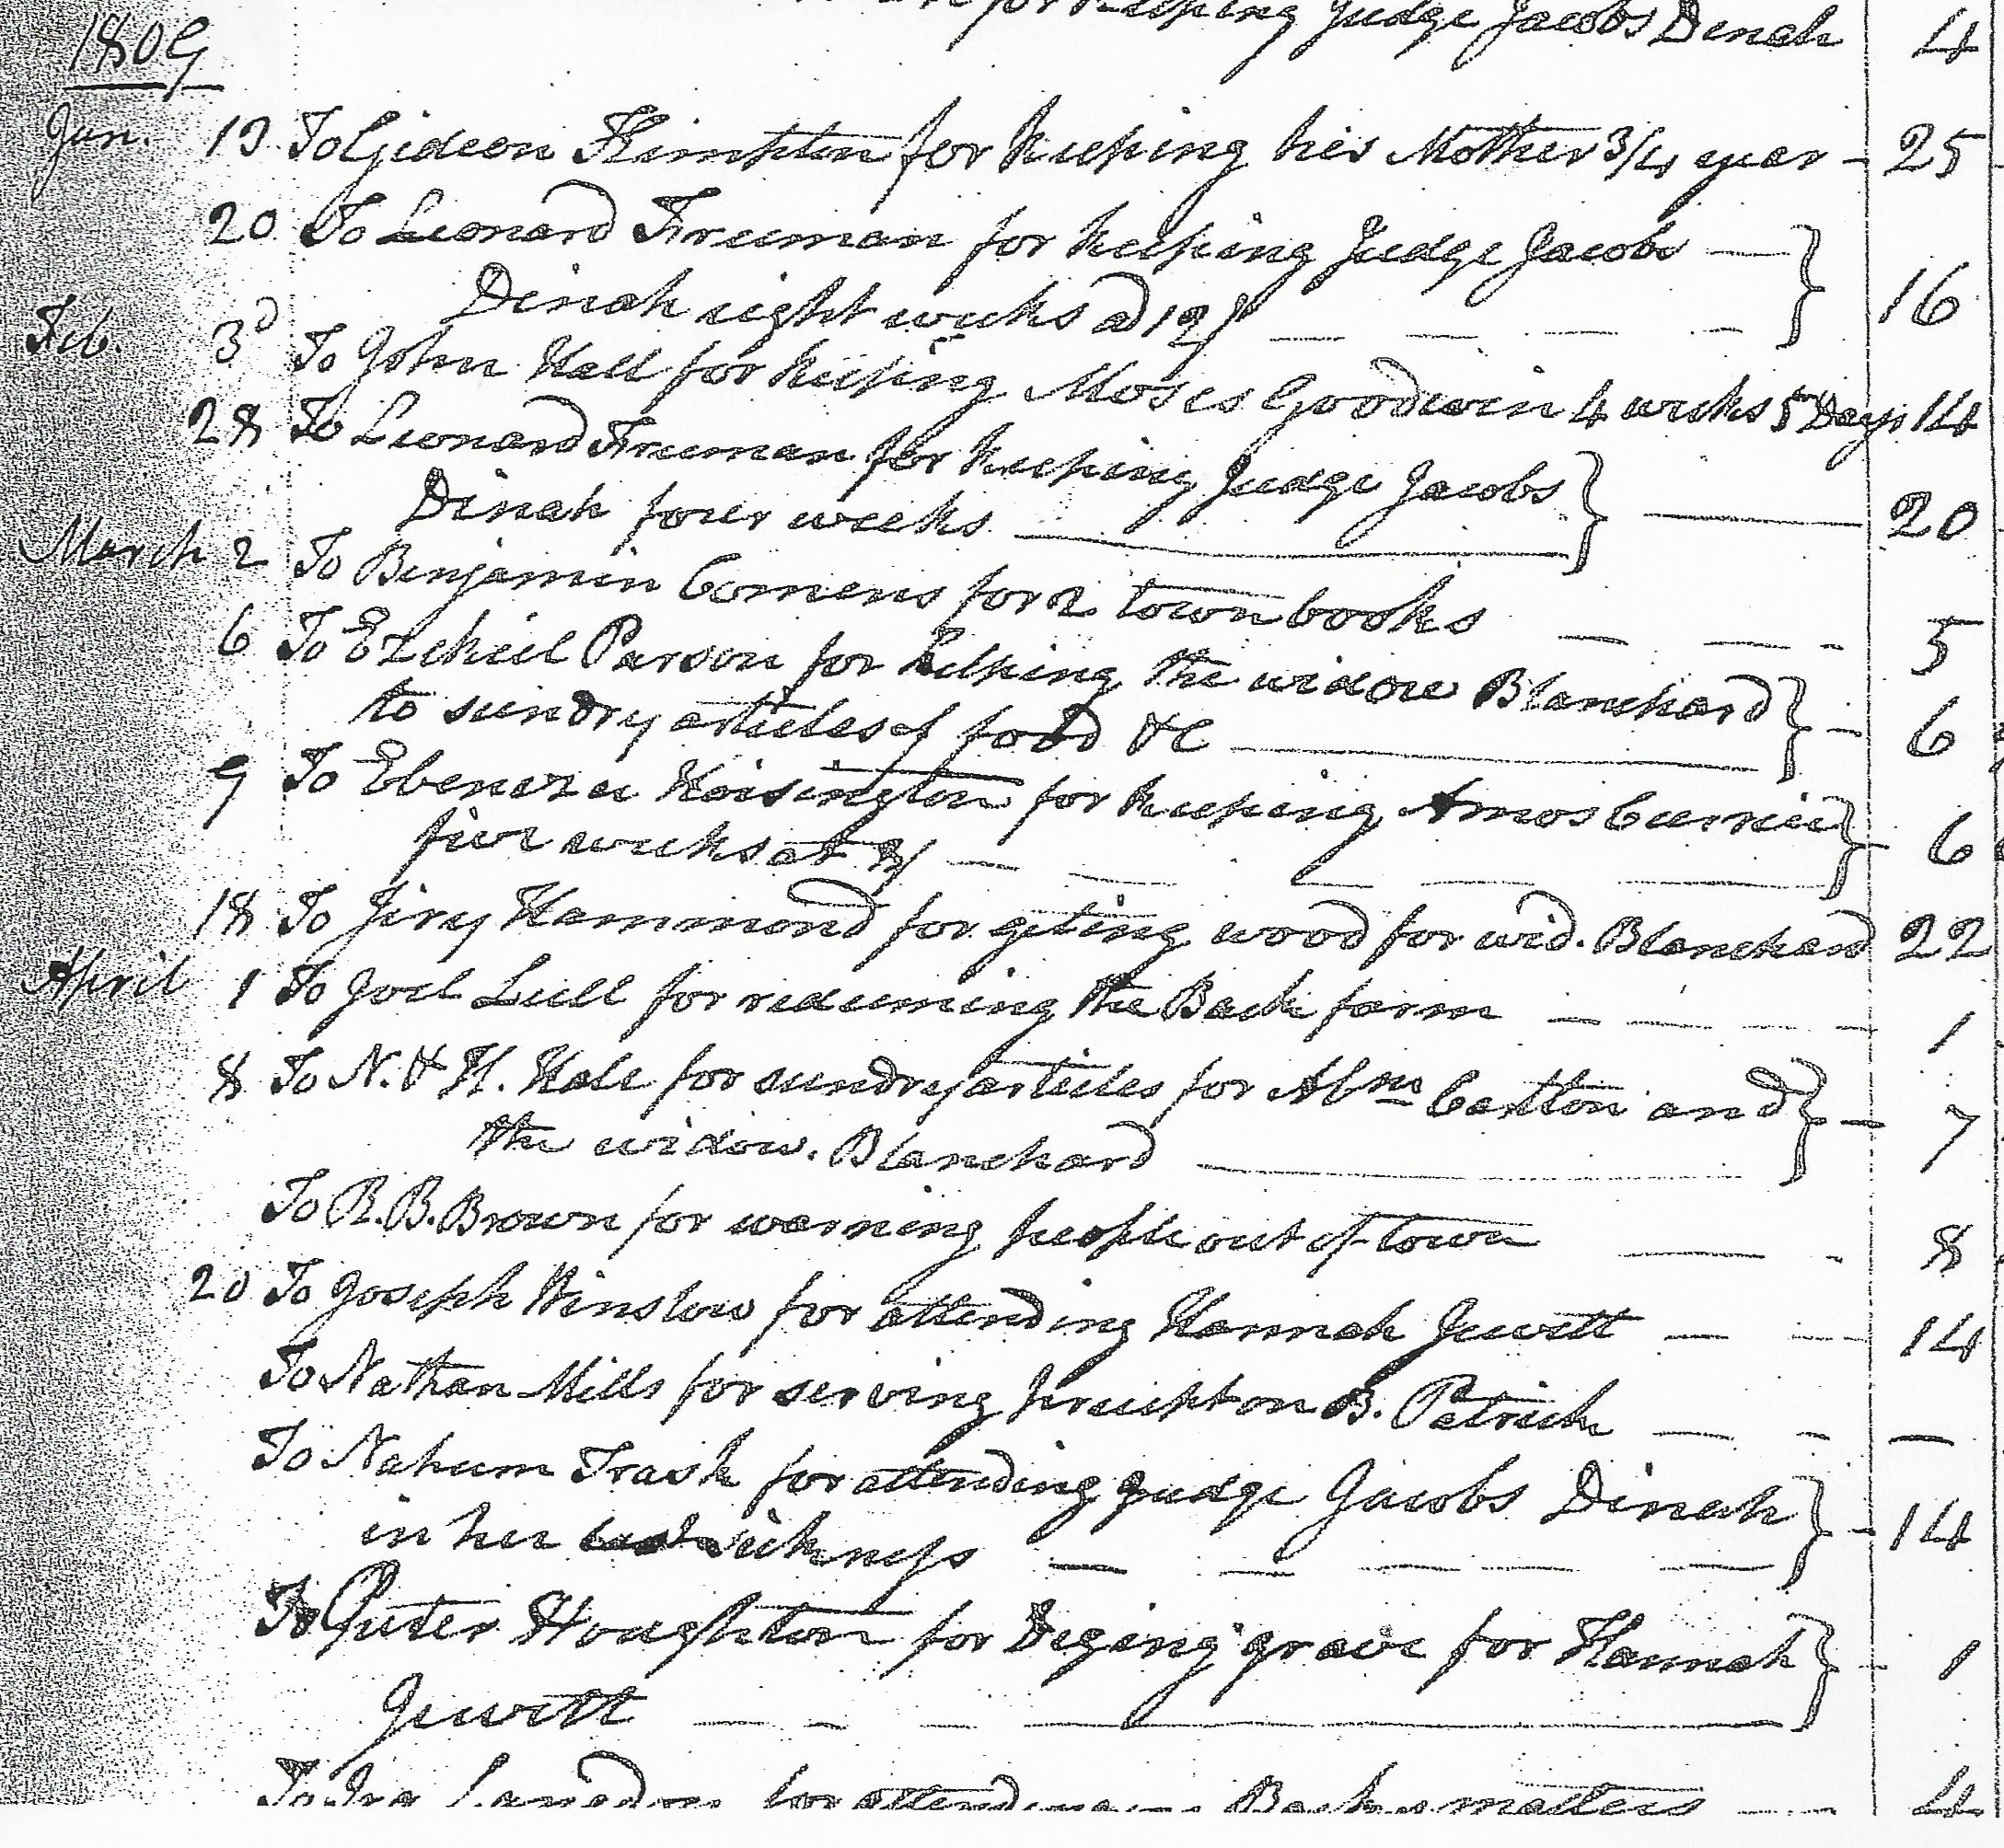 for keeping Judge Jacobs Dinah 4
1809
Jan. 13 To Gideon Kimpton for keeping his Mother 3/4 year - 25
20 To Leonard Freeman for keeping Judge Jacobs —
Dinah eight weeks ad 12/ — — — — } 16
Feb. 3d To John Hall for keeping Moses Goodwin 4 weeks 5 Days 14
28 To Leonard Freeman for keeping Judge Jacobs
Dinah four weeks — } — 20
March 2 To Benjamin Comens for 2 town books — — - 5
6 To Ezekeil Parson for helping the widow Blanchard
to sundry articles of food &c — } - 6
9 To Ebenezer Hoisington for keeping Amos Currier
five weeks at 8/ — — — — — } - 6
18 To Jiry Hammond for geting wood for wid. Blanchard 22
April 1 To Joel Lull for redeeming the Back farm — — - - 1
8 To N. & H. Hale for sundry articles for Abm Carlton and
the widow. Blanchard — } - 7
To R. B. Brown for warning people out of town — - 8
20 To Joseph Winslow for attending Hannah Jewett — — 14
To Nathan Mills for serving precipt on B. Patrick — - —
To Nahum Trask for attending Judge Jacobs Dinah
in her sickness — — — — } - 14
To Peter Houghton for Deging grave for Hannah
Jewett — - — — } - 1
To Ira for attending Backus matters — 4